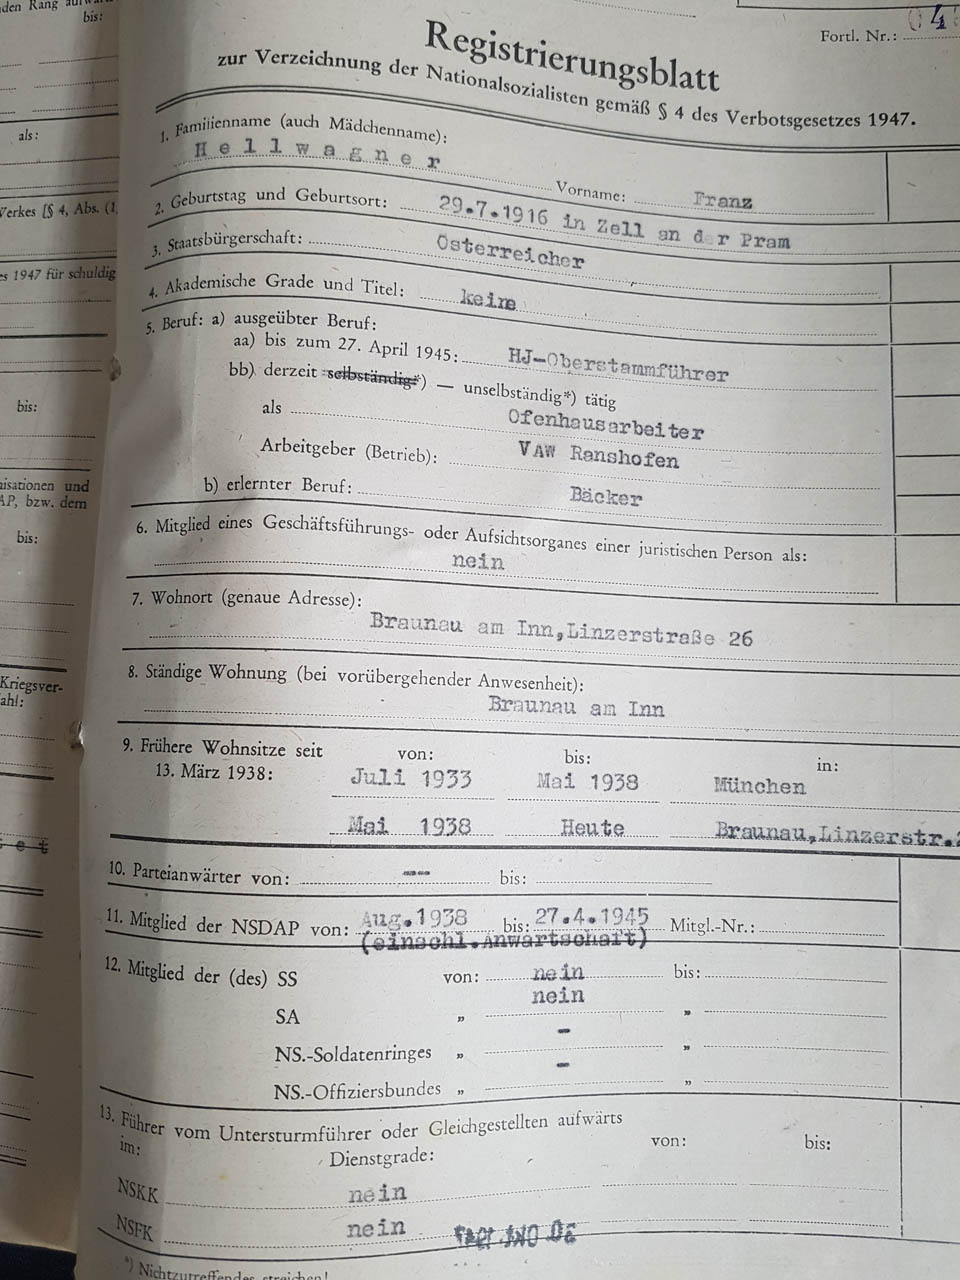 den Rang aufwärts
bis:
als:
Werkes [§ 4, Abs. (1
es 1947 für schuldig
bis:
nisationen und
AP, bzw. dem
bis:
Kriegsver-
ahl:
e t
Fortl. Nr.: 04
Registrierungsblatt
zur Verzeichnung der Nationalsozialisten gemäß § 4 des Verbotsgesetzes 1947.
1. Familienname (auch Mädchenname):
Hellwagner Vorname: Franz
2. Geburtstag und Geburtsort: 29.7.1916 in Zell an der Pram
3. Staatsbürgerschaft: Österreicher
4. Akademische Grade und Titel: keine
5. Beruf: a) ausgeübter Beruf:
aa) bis zum 27. April 1945: HJ-Oberstammführer
bb) derzeit selbständig*) — unselbständig*) tätig
als Ofenhausarbeiter
Arbeitgeber (Betrieb): VAW Ranshofen
b) erlernter Beruf: Bäcker
6. Mitglied eines Geschäftsführungs- oder Aufsichtsorganes einer juristischen Person als:
nein
7. Wohnort (genaue Adresse):
Braunau am Inn,Linzerstraße 26
8. Ständige Wohnung (bei vorübergehender Anwesenheit):
Braunau am Inn
9. Frühere Wohnsitze seit von: bis: in:
13. März 1938: Juli 1933 Mai 1938 München
Mai 1938 Heute Braunau,Linzerstr.2
10. Parteianwärter von: --- bis:
11. Mitglied der NSDAP von: Aug.1938 bis: 27.4.1945 Mitgl.-Nr.:
(einschl.Anwartschaft)
12. Mitglied der (des) SS von: nein bis:
SA „ nein „
NS.-Soldatenringes „ - „
NS.-Offiziersbundes „ - „
13. Führer vom Untersturmführer oder Gleichgestellten aufwärts
im: Dienstgrade: von: bis:
NSKK nein
NSFK nein
*) Nichtzutreffendes streichen!